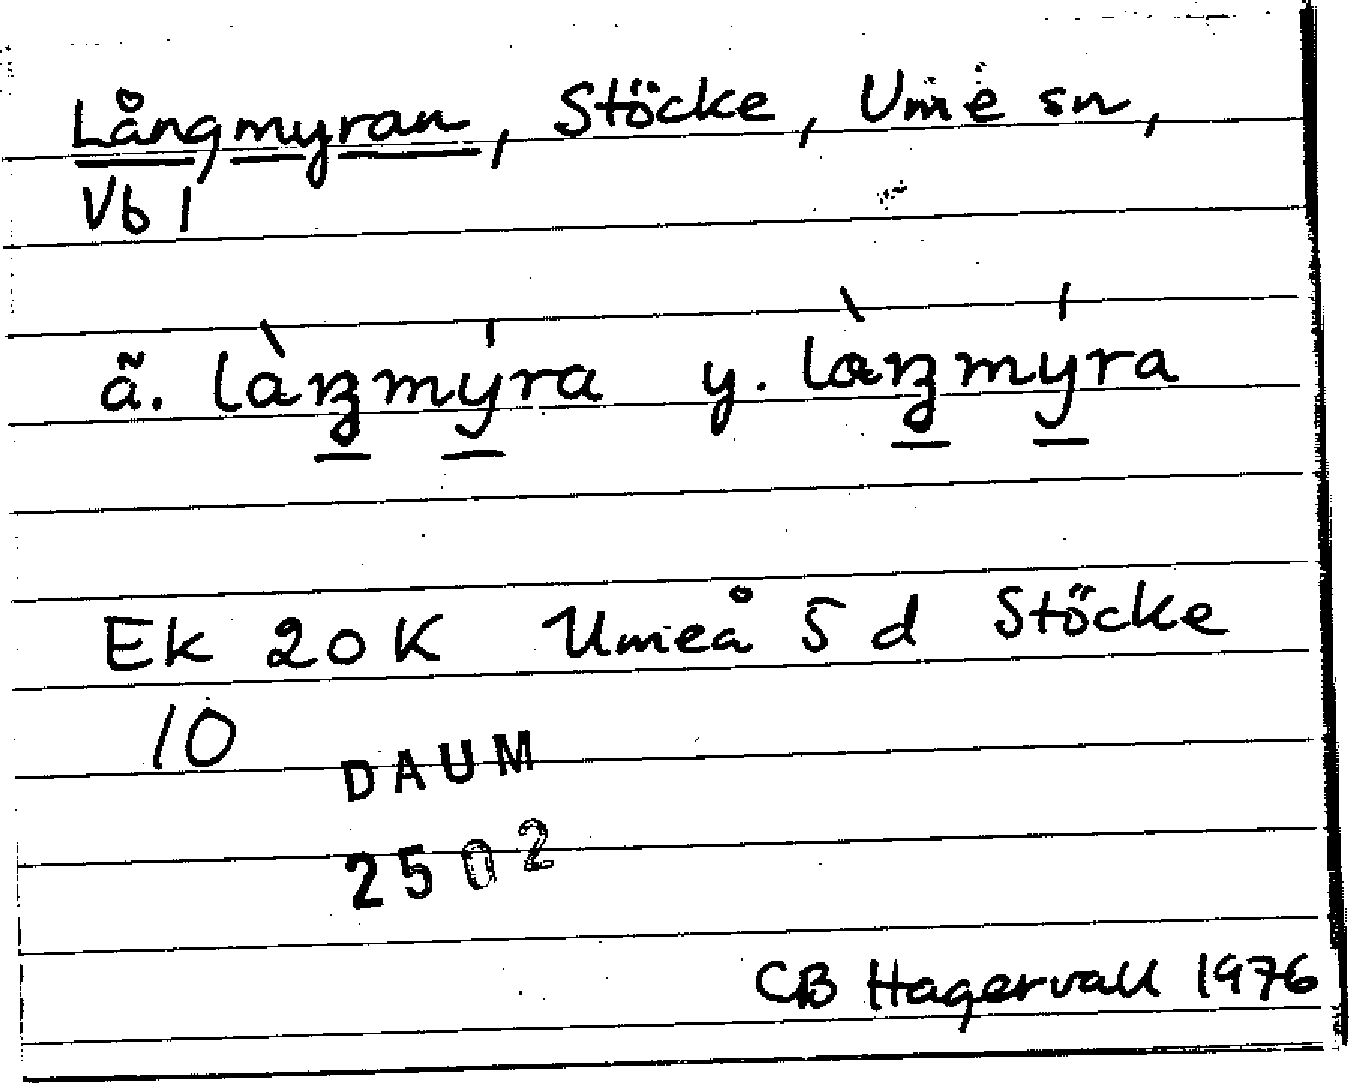 Långmyran, Stöcke, Umeå sn,
Vb 1
ä. làŋmýra y. lɷ̀ŋmýra
Ek 20K Umeå 5 d Stöcke
10
DAUM
2502
CB Hagervall 1976